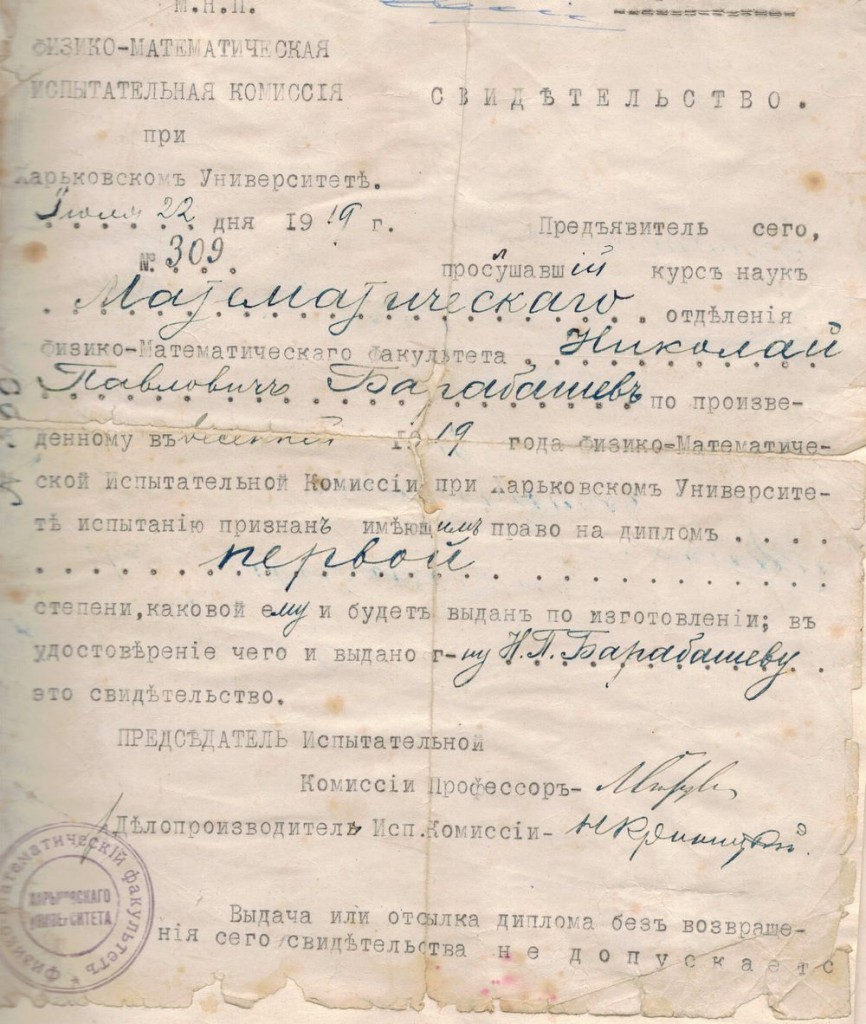 М.Н.П.
ФИЗИКО-МАТЕМАТИЧЕСКАЯ
ИСПЫТАТЕЛЬНАЯ КОМИССІЯ
СВИДѢТЕЛЬСТВО.
при
Харьковскомъ Университетѣ.
Іюля 22 дня 1919 г.
Предъявитель сего,
№ 309
прослушавшій курсъ наукъ
Математическаго отдѣленія
Физико-Математическаго факультета Николай
Павловичъ Барабашевъ по произве-
денному въ весенній 1919 года Физико-Математиче-
ской Испытательной Комиссіи при Харьковскомъ Университе-
тѣ испытанію признанъ имѣющимъ право на дипломъ . . . .
первой
степени,каковой ему и будетъ выданъ по изготовленіи; въ
удостовѣреніе чего и выдано г-ну Н.П.Барабашеву.
это свидѣтельство.
ПРЕДСѢДАТЕЛЬ Испытательной
Комиссіи Профессоръ-
Дѣлопроизводитель Исп.Комиссіи-
Физико-математическій факультетъ
ХАРЬКОВСКАГО
УНИВЕРСИТЕТА
Выдача или отсылка диплома безъ возвраще-
нія сего свидѣтельства не допускаетс